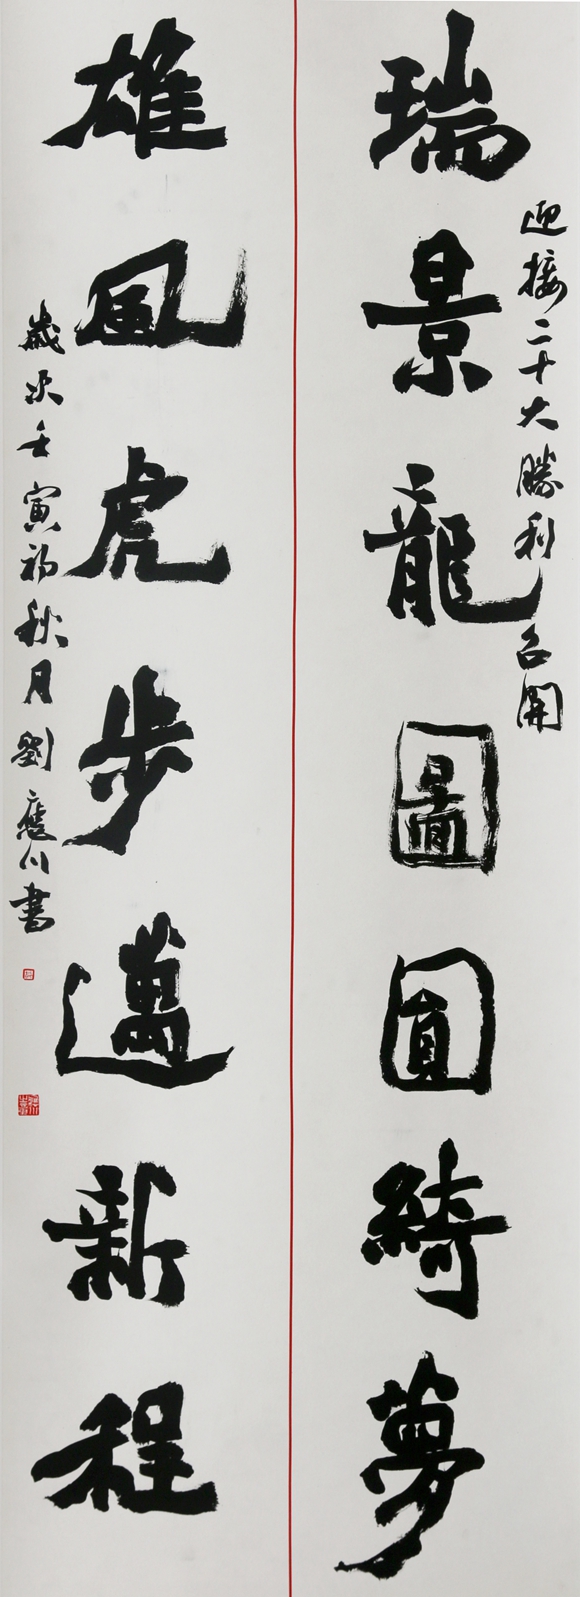 迎接二十大勝利召開
瑞景龍圖圓綺夢
雄風虎步邁新程
歲次壬寅初秋月劉應川書